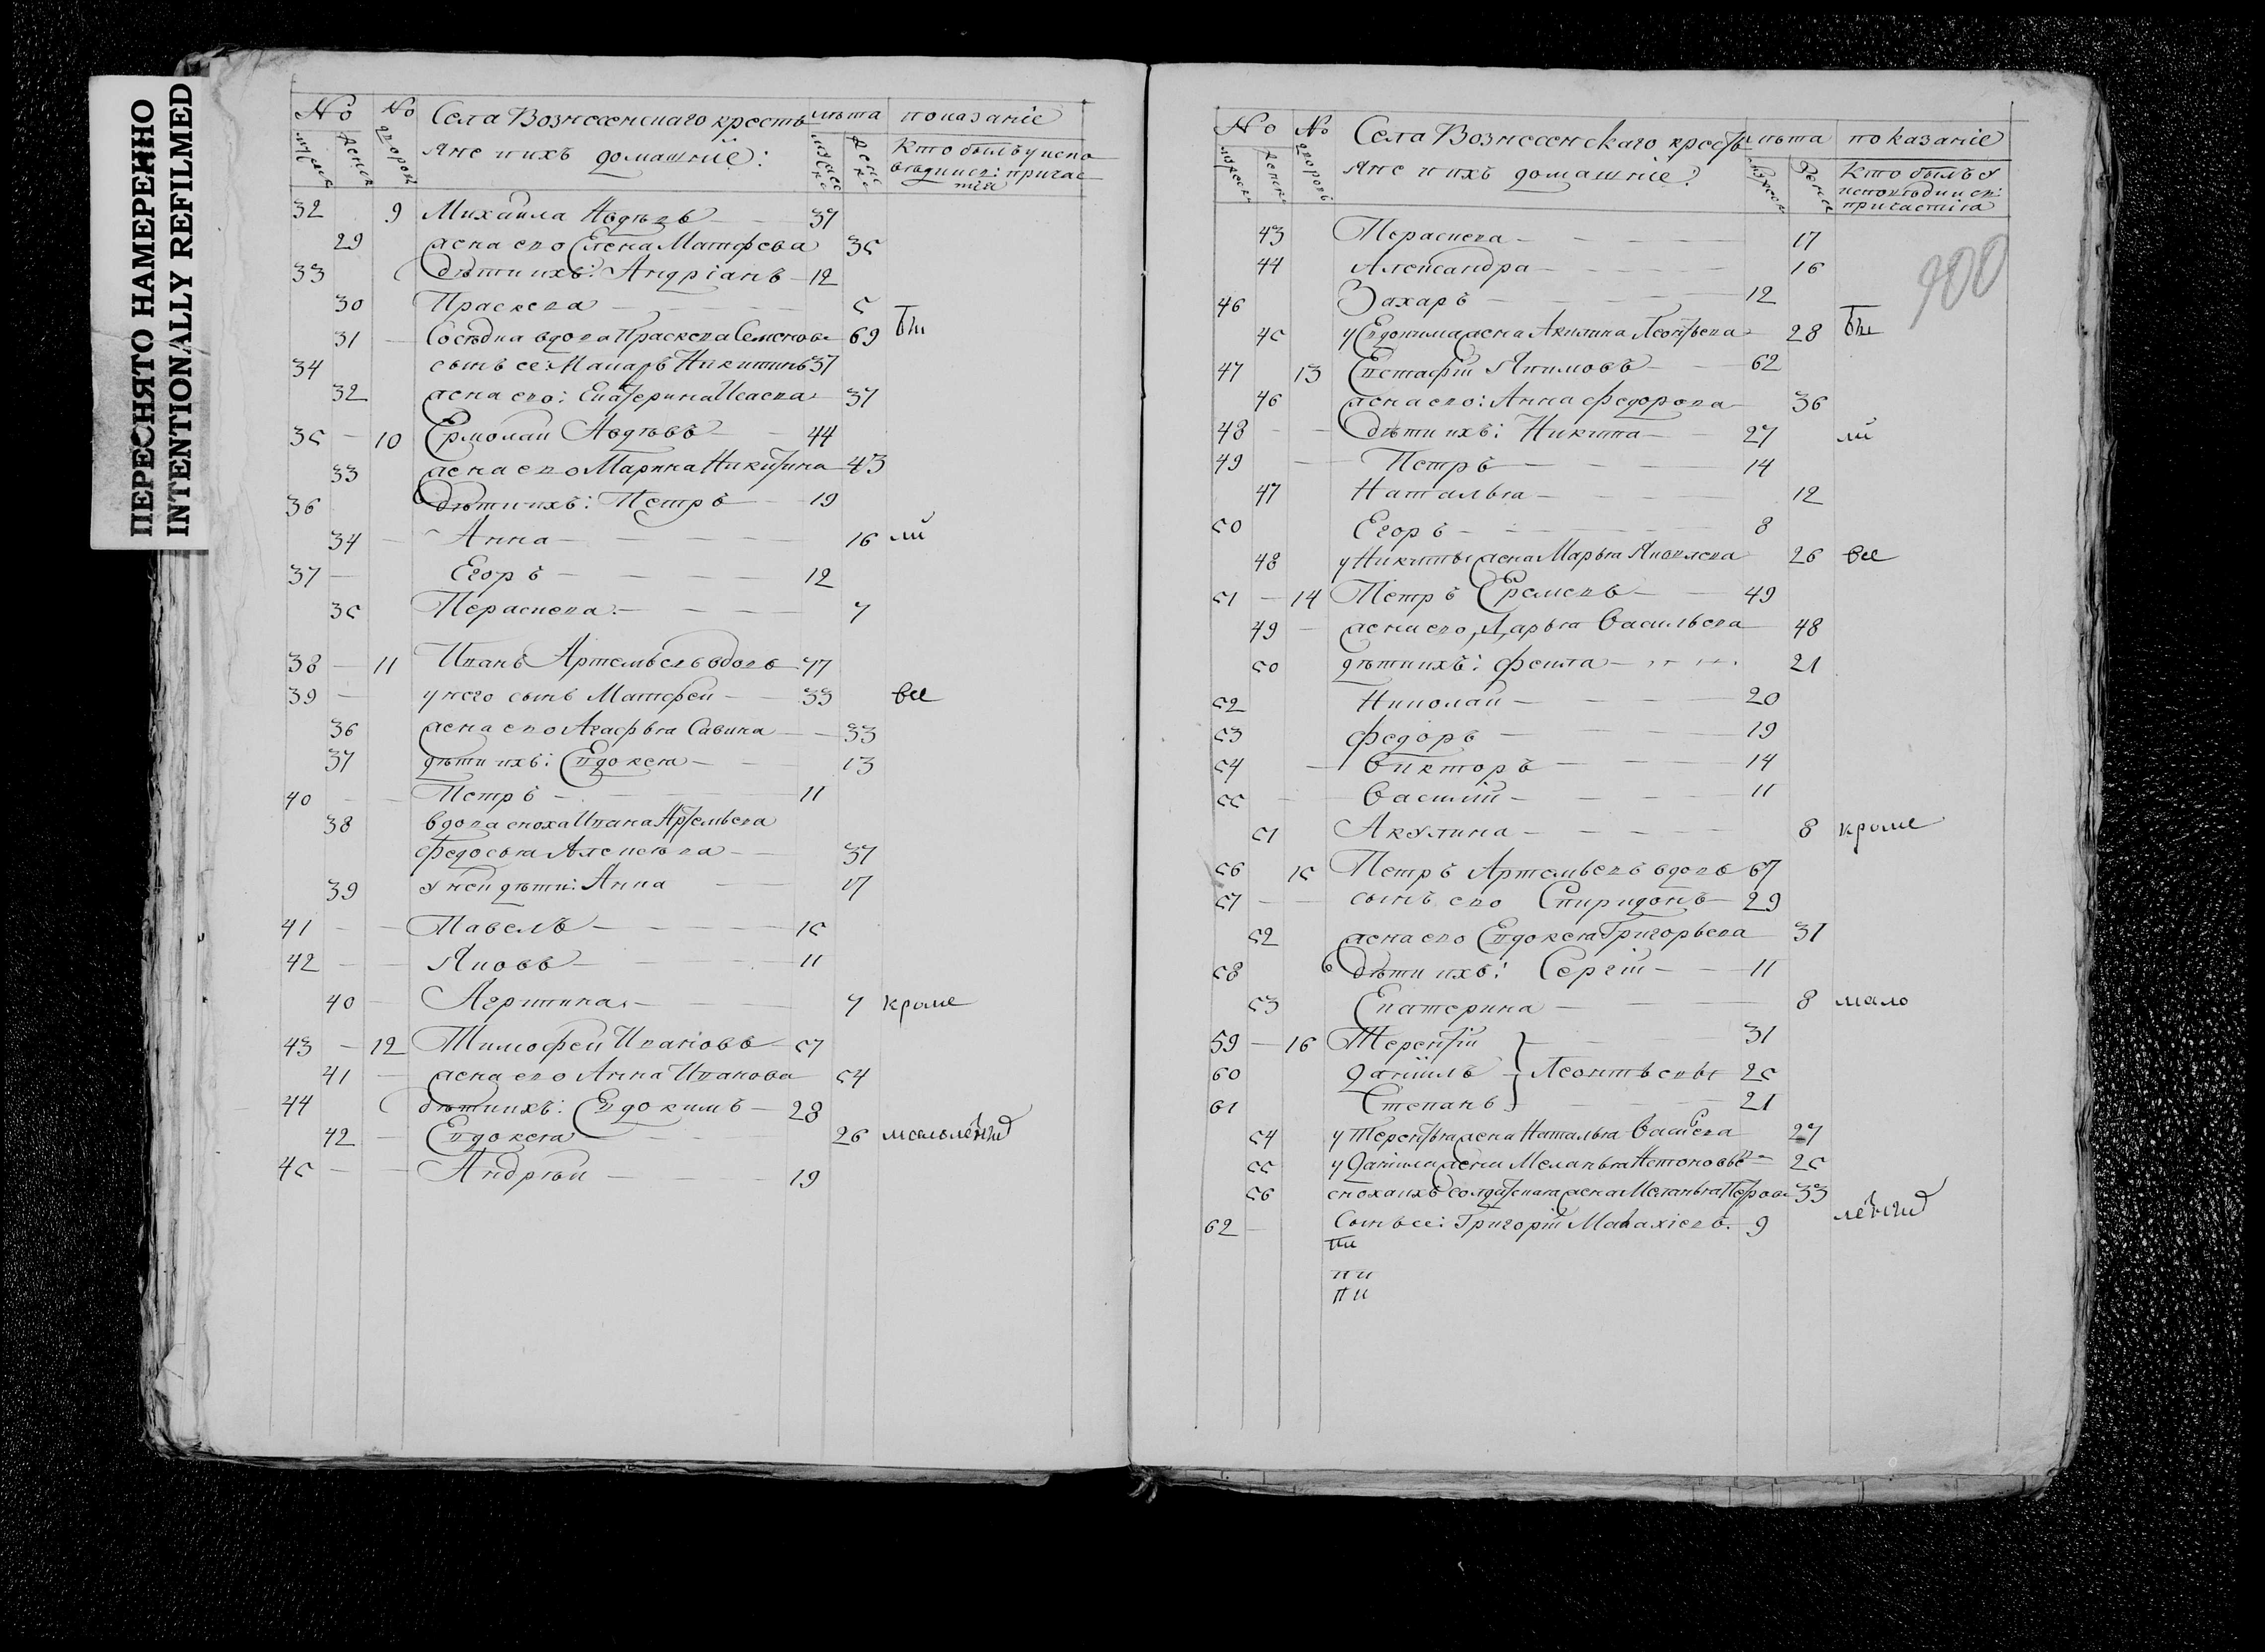 ПЕРЕСНЯТО НАМЕРЕННО
INTENTIONALLY REFILMED
№ № Села Вознесенскаго кресть лѣта показанiе
яне и ихъ домашнiе: Кто былъ у испо
вѣди и св: причас
тiя
32 9 Михайла Авдѣевъ 37
29 жена ево Елена Матфеева 35
33 дѣти ихъ: Андрiанъ 12
30 Праскева 5
31 Сосѣдка вдова Праскева Семенова 69 бы
34 сынъ ее: Макаръ Никитинъ 37
32 жена ево: Екатерина Исаева 37
35 10 Ермолай Авдѣевъ 44
33 жена ево Марина Никитина 43
36 дѣти ихъ: Петръ 19
34 Анна 16 ли
37 Егоръ 12
35 Пераскева 7
38 11 Иванъ Артемьевъ вдовъ 77
39 у него сынъ Матфей 33 все
36 жена ево Агафья Савина 33
37 дѣти ихъ: Евдокея 13
40 Петръ 11
38 вдова сноха Ивана Артемьева
Федосья Алексѣева 37
39 у ней дѣти: Анна 17
41 Павелъ 15
42 Яковъ 11
40 Агрипина 7 кроме
43 12 Тимофей Ивановъ 57
41 жена ево Анна Иванова 54
44 дѣти ихъ: Евдокимъ 28
42 Евдокея 26
45 Андрѣй 19
№ № Села Вознесенскаго кресть лѣта показанiе
яне и ихъ домашнiе: Кто былъ у
исповѣди и св:
причастiя
900
43 Пераскева 17
44 Александра 16
46 Захаръ 12
45 у Евдокима жена Акилина Леонтьева 28 бы
47 13 Евстафiй Якимовъ 62
46 жена ево: Анна Федорова 36
48 дѣти ихъ: Никита 27 ли
49 Петръ 14
47 Наталья 12
50 Егоръ 8
48 у Никиты жена Марья Яковлева 26 все
51 14 Петръ Еремеевъ 49
49 жена ево, Дарья Васильева 48
50 дѣти ихъ: Фекла 21
52 Николай 20
53 Федоръ 19
54 Викторъ 14
55 Василiй 11
51 Акулина 8 кроме
56 15 Петръ Артемьевъ вдовъ 67
57 сынъ ево Спиридонъ 29
52 жена ево Евдокея Григорьева 31
58 дѣти ихъ: Сергiй 11
53 Екатерина 8 мало
59 16 Терентiй 31
60 Данiилъ } Леонтьевы 25
61 Степанъ 21
54 у Терентья жена Наталья Васиева 27
55 у Данiила жена Меланья 25
56 сноха ихъ солдатская жена Меланья Петрова 33
62 Сынъ ее: Григорiй Малахiевъ. 9